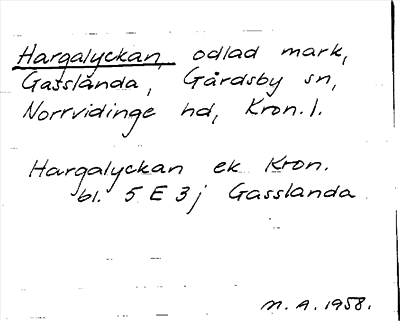 Hargalyckan, odlad mark,
Gasslånda, Gårdsby sn,
Norrvidinge hd, Kron. l.
Hargalyckan ek Kron.
bl. 5 E 3j Gasslanda
M. A. 1958.